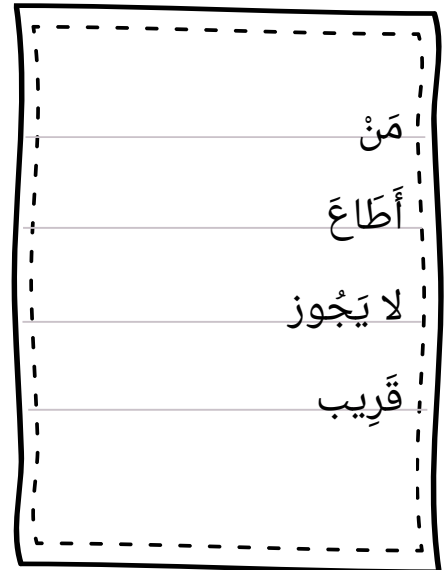 مَنْ
أَطَاعَ
لا يَجُوز
قَرِيب